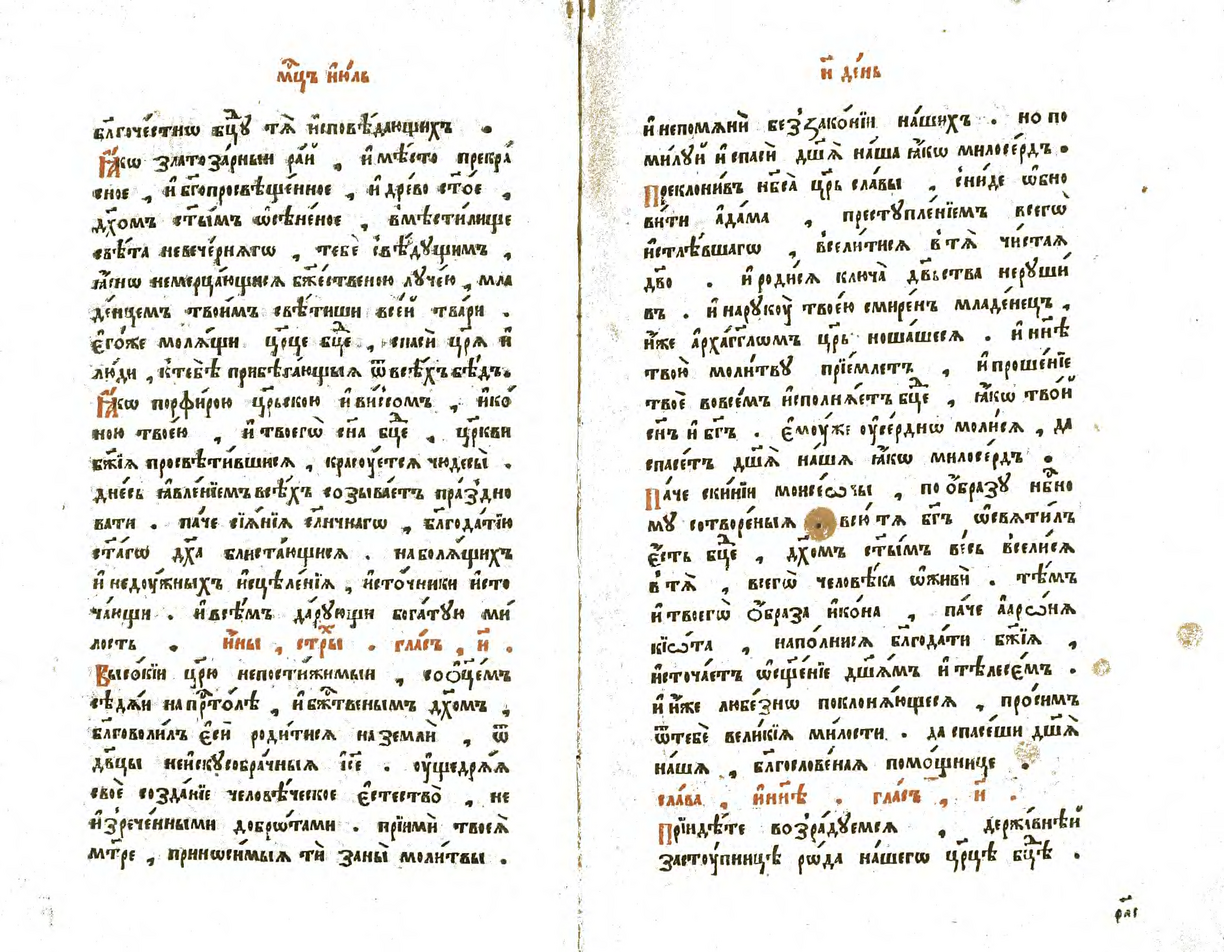 мц҃ъ и҆ю́ль
бл҃гоче́стнѡ бц҃у тѧ̀ и҆сповѣ́дающихъ .
Ꙗ҆́кѡ златоза́рныи ра́и , и҆ мѣ́сто прекра́
сное , и҆ бг҃опросвѣще́нное , и҆ дре́во ст҃о́е ,
дх҃омъ ст҃ы́мъ ѡ҆сѣне́ное , вмѣсти́лище
свѣ́та невече́рнѧгѡ , тебѐ свѣ́дущимъ ,
ꙗ҆́снѡ немерца́ющисѧ бж҃ественою луче́ю , мла
де́нцемъ твои́мъ свѣ́тиши все́й тва́ри .
є҆го́же молѧ́щи цр҃це бц҃е , спасѝ цр҃ѧ̀ и҆
лю́ди , к тебѣ̀ прибѣга́ющыѧ ѿ всѣ́хъ бѣ́дъ .
Ꙗ҆́кѡ порфи́рою цр҃ьскою и҆ ви́ссомъ , и҆ко́
ною твое́ю , и҆ твоегѡ̀ сн҃а бц҃е , цр҃кви
бж҃їѧ просвѣти́вшисѧ , красоу́етсѧ чюдесы̀ .
дне́сь ꙗ҆вле́нїемъ всѣ́хъ созыва́етъ пра́здно
вати . па́че сїѧ́нїѧ сл҃ничнагѡ , бл҃года́тїю
ст҃а́гѡ дх҃а блиста́ющисѧ . на болѧ́щихъ
и҆ недоу́жныхъ и҆сцѣле́нїѧ , и҆сто́чники и҆сто
ча́ющи . и҆ всѣ́мъ да́рующи бога́тую ми́
лость . и҆́ны , стх҃ры . гла́съ , и҃ .
Высо́кїи цр҃ю непостижи́мыи , со ѻ҆ц҃е́мъ
сѣдѧ́и на прⷭ҇то́лѣ , и҆ бжⷭ҇твенымъ дх҃омъ ,
бл҃говоли́лъ є҆сѝ роди́тисѧ на землѝ , ѿ
дв҃цы неи́скусобра́чныѧ і҆с҃е . оу҆щедрѧ́ѧ
своѐ созда́нїе человѣ́ческое є҆стество̀ , не
и҆зрече́нными добрѡ́тами . прїимѝ твоеѧ̀
мт҃ре , принѡси́мыѧ тѝ за ны̀ моли́твы .
и҃ де́нь
и҆ непомѧнѝ беззако́нїи на́шихъ . но по
ми́луй и҆ спасѝ дш҃ѧ̀ наша ꙗ҆́кѡ милосе́рдъ .
Преклони́въ нб҃еса̀ цр҃ь сла́вы , сни́де ѡ҆бно
ви́ти а҆да́ма , преступле́нїемъ всегѡ̀
и҆стлѣ́вшагѡ , всели́тисѧ в тѧ̀ чи́стаѧ
дв҃о . и҆ роди́сѧ ключа̀ дв҃ьства неруши́
въ . и҆ на рукоу̀ твое́ю смире́нъ младе́нецъ ,
и҆́же а҆рха́гг҃лѡмъ цр҃ь ноша́шесѧ . и҆ нн҃ѣ
твою̀ моли́тву прїе́млетъ , и҆ проше́нїе
твоѐ во все́мъ и҆сполнѧ́етъ бц҃е , ꙗ҆́кѡ тво́й
сн҃ъ и҆ бг҃ъ . є҆моу́же оу҆се́рднѡ моли́сѧ , да
спасе́тъ дш҃ѧ̀ нашѧ ꙗ҆́кѡ милосе́рдъ .
Па́че ски́нїи моисе́ѡвы , по ѻ҆́бразу нбⷭ҇но
му сотворе́ныѧ всю̀ тѧ бг҃ъ ѡ҆свѧти́лъ
є҆́сть бц҃е , дх҃омъ ст҃ы́мъ ве́сь всели́сѧ
в тѧ̀ , всегѡ̀ человѣ́ка ѡ҆живѝ . тѣ́мъ
и҆ твоегѡ̀ ѻ҆́браза и҆ко́на , па́че а҆арѡ́нѧ
кїѡ́та , напо́лнисѧ бл҃года́ти бж҃їѧ ,
и҆сточа́етъ ѡ҆сщ҃е́нїе дш҃ѧ́мъ и҆ тѣлесе́мъ .
и҆ и҆́же любе́знѡ поклонѧ́ющесѧ , про́симъ
ѿ тебѐ вели́кїѧ ми́лости . да спасе́ши дш҃ѧ̀
на́шѧ , бл҃гослове́наѧ помо́щнице .
сла́ва , и҆ нн҃ѣ . гла́съ , и҃ .
Прїидѣ́те возра́дуемсѧ , держа́внѣй
застоу́пницѣ рѡ́да на́шегѡ цр҃цѣ бц҃ѣ .